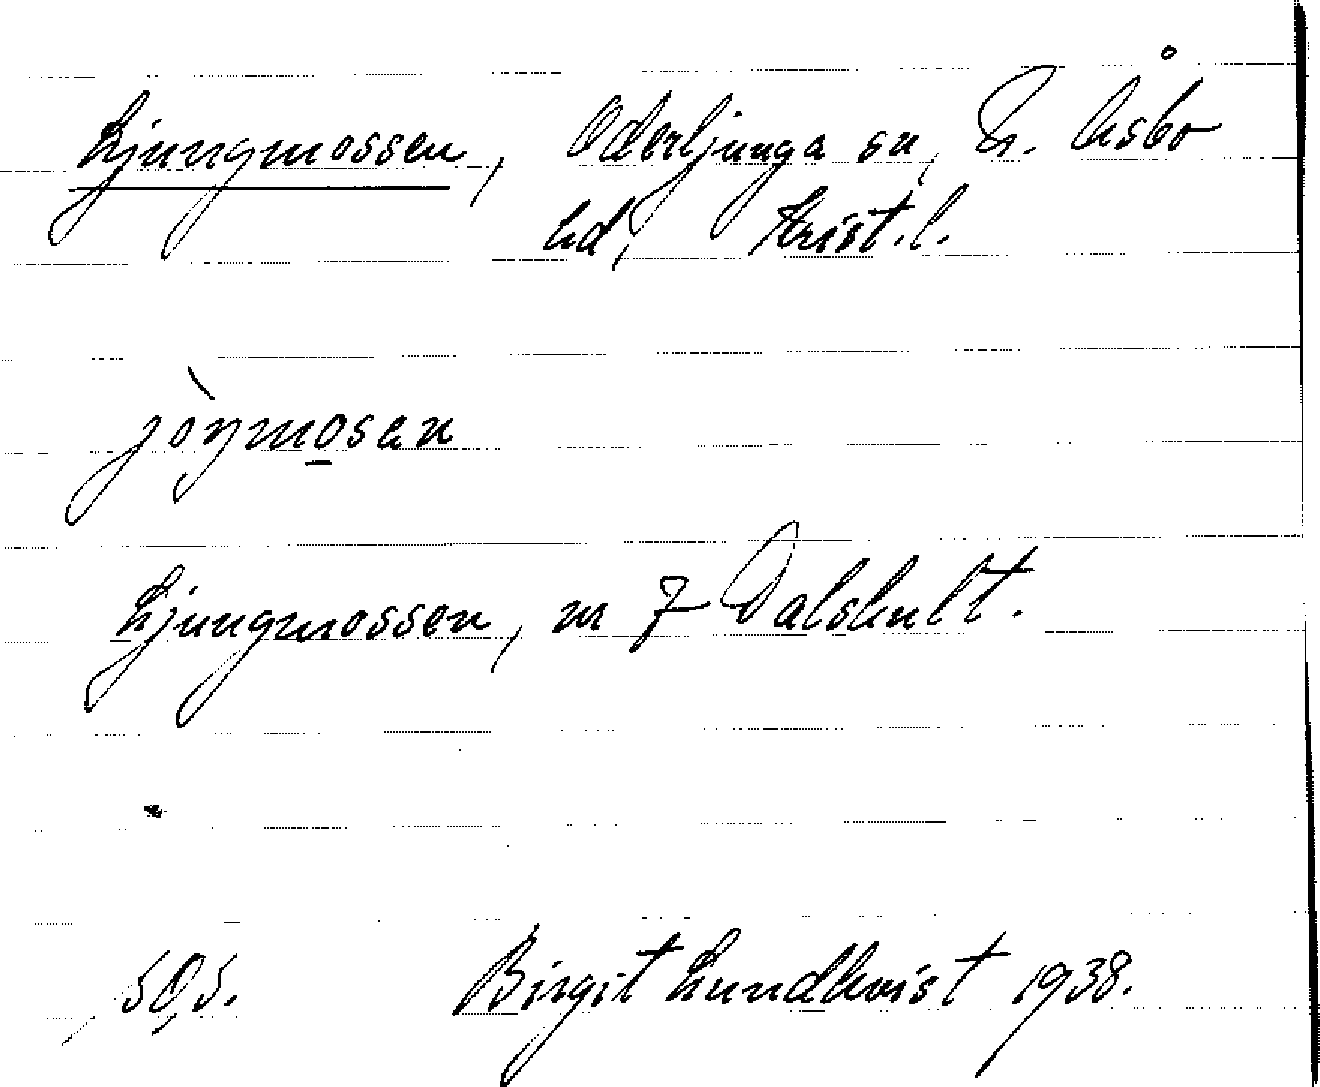 Ljungmossen, Oderljunga sn, N. Åsbo
hd, Krist. l.
jòŋmosen
Ljungmossen, m 7 Dalshult.
Birgit Lundkvist 1938.